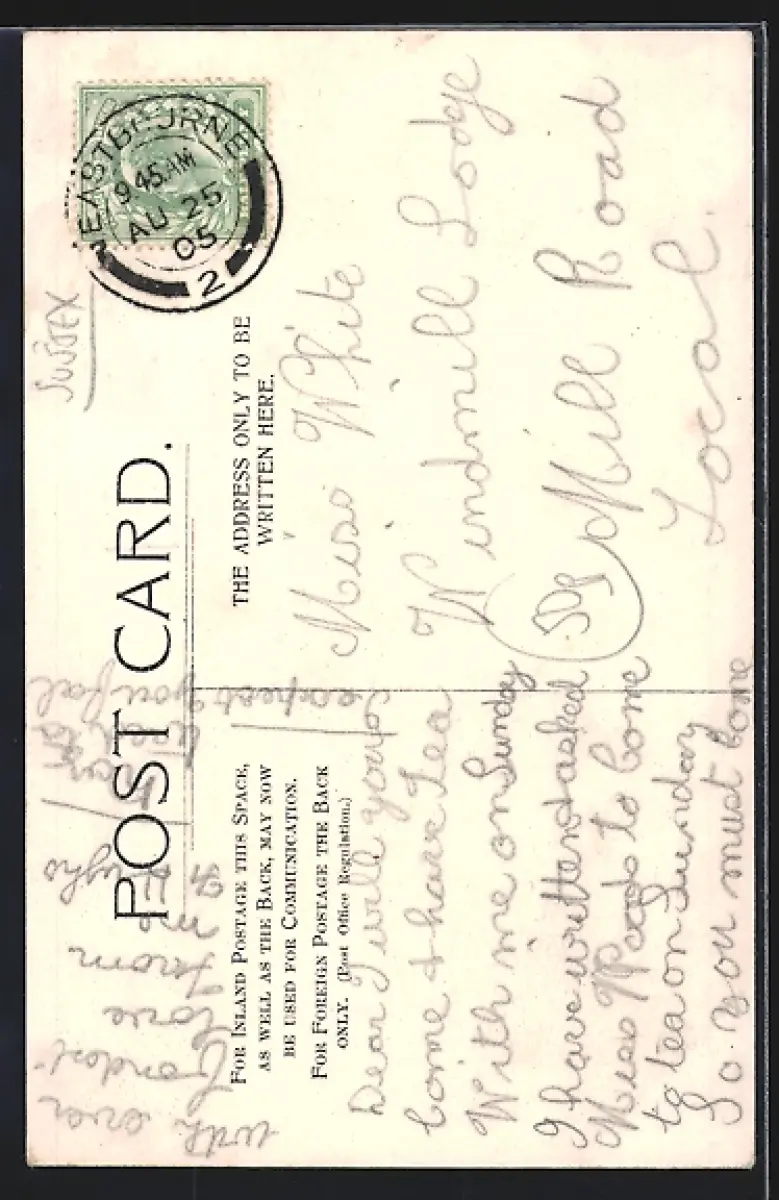 EASTBOURNE
9 45 AM
AU 25
05
2
SUSSEX
POST CARD.
THE ADDRESS ONLY TO BE
WRITTEN HERE.
FOR INLAND POSTAGE THIS SPACE,
AS WELL AS THE BACK, MAY NOW
BE USED FOR COMMUNICATION.
FOR FOREIGN POSTAGE THE BACK
ONLY. (Post Office Regulation.)
Miss White
Windmill Lodge
Mill Road
Local.
Dear J will you
come & have Tea
With me on Sunday
I have written & asked
Miss Woods to come
to tea on Sunday
So you must come
expect you
with
love from